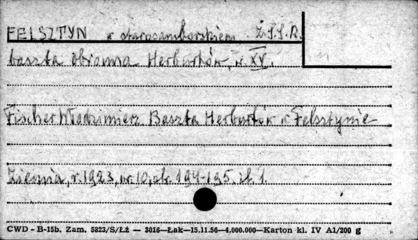 FELSZTYN w starosamborskiem Z.S.S.R.
baszta obronna Herburtów, w. XV.
Fischer Włodzimierz Baszta Herburtów w Felsztynie
Ziemia, r. 1923, nr 10, str. 194-195. il. 1.
CWD - B-15b. Zam. 5823/S/ŁŻ — 3016—Łak—15.11.56—4.000.000—Karton kl. IV A1/200 g